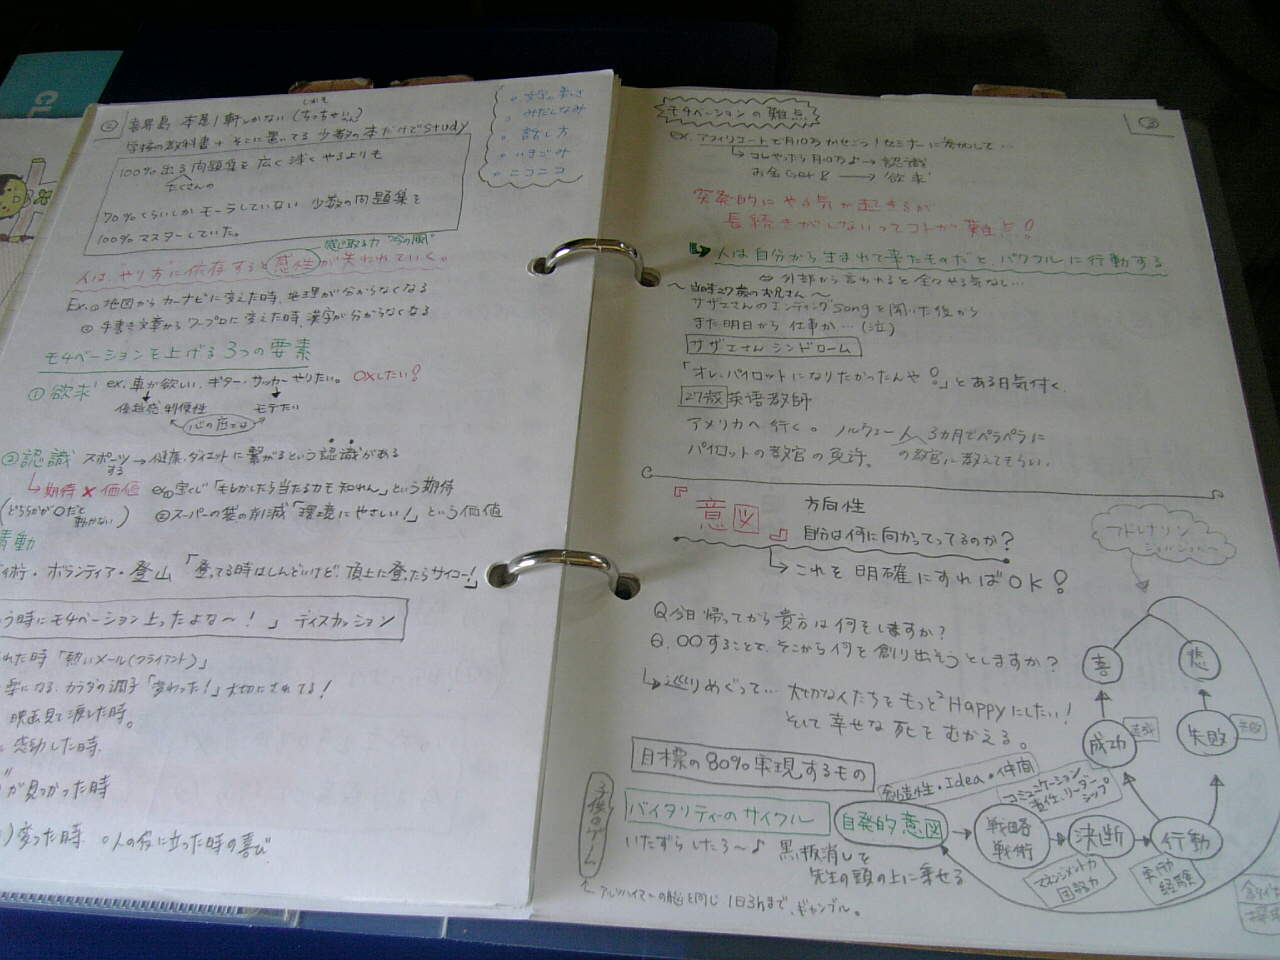 喜界島 本屋1軒しかない
学校の教科書+そこに置いてる少数の本だけでstudy
100%出る問題集を広く浅くやるよりも
たくさんの
70%くらいしかモーラしていない 少数の問題集を
100%マスターしていた。
人は"やり方"に依存すると感性が失われていく。
Ex.① 地図からカーナビに変えた時、地理が分からなくなる
② 手書き文章からワープロに変えた時、漢字が分からなくなる
モチベーションを上げる3つの要素
①欲求 ex.車が欲しい、ギター・サッカーやりたい。 ○×したい!
優越感 利便性 モテたい
心の底では
②認識 スポーツする→健康、ダイエットに繋がるという認識がある
↳期待×価値 ex① 宝くじ「もしかしたら当たるカモ知れん」という期待
(どちらかが0だと動かない) ②スーパーの袋の削減「環境にやさしい!」という価値
情動
術・ボランティア・登山 「登ってる時はしんどいけど、頂上に登ったらサイコー!」
う時にモチベーション上ったよな〜!」 ディスカッション
れた時「熱いメール(クライアント)」
楽になる、カラダの調子「変わった!」大切にされてる!
映画見て涙した時。
感動した時
が見つかった時
変った時 ○人の役に立った時の喜び
○文字の美しさ
○みだしなみ
○話し方
○いきごみ
○ニコニコ
モチベーションの難点
ex. アフィリエートで月10万かせごう!セミナーに参加して…
↳コレやったら月10万よ→認識
お金Get♪ → "欲求"
突発的にやる気が起きるが
長続きがしないってコトが難点!
人は自分から生まれて来たものだと、パワフルに行動する
⇔ 外部から言われると全々やる気なし…
〜当時27歳のお兄さん〜
サザエさんのエンディングsongを聞いた後から
また明日から仕事か…(泣)
サザエさんシンドローム
「オレ、パイロットになりたかったんや!」とある日気付く
27歳 英語教師
アメリカへ行く。 ノルウェー人 3ヵ月でペラペラに
パイロットの教官の免許。 の教官に教えてもらい
『意図』 方向性
自分は何に向かってってるのか?
↳これを明確にすればOK!
Q.今日帰ってから貴方は何をしますか?
Q.○○することで、そこから何を創り出そうとしますか?
↳巡りめぐって… 大切な人たちをもっと²Happyにしたい!
そして幸せな死をむかえる。
目標の80%実現するもの
バイタリティーのサイクル
いたずらしたろ〜♪ 黒板消しを
先生の頭の上に乗せる
子供のゲーム
アルツハイマーの脳と同じ 1日3hまで、ギャンブル。
創造性・Idea・仲間
自発的意図
戦略
戦術
コミュニケーション
責任、リーダーシップ
決断
行動
マネジメント力
実行
経験
成功
失敗
喜
悲
達成
失敗
アドレナリン